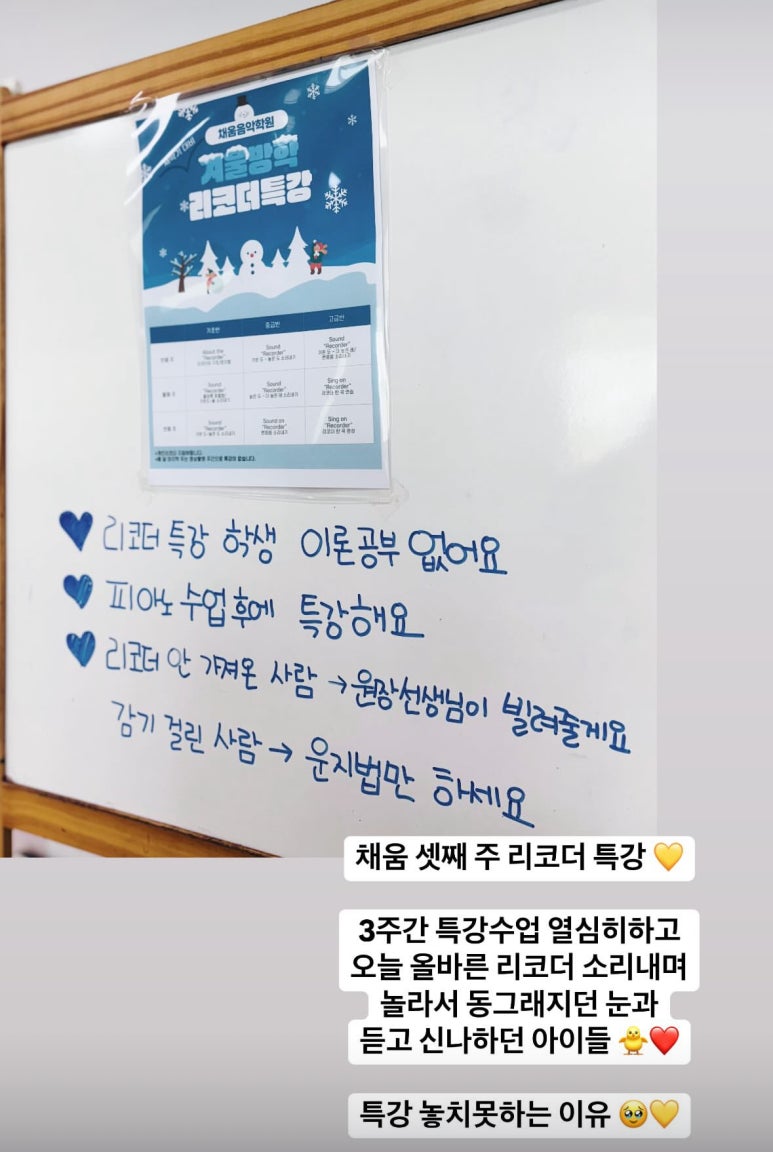 채움음악학원
새학기 대비
겨울방학
리코더특강
중급반
고급반
About the
"Recorder"
Sound
"Recorder"
Sound
"Recorder"
Sound
"Recorder"
Sound
"Recorder"
Sing on
"Recorder"
Sound
"Recorder"
Sound on
"Recorder"
Sing on
"Recorder"
💙 리코더 특강 학생 이론공부 없어요
💙 피아노 수업 후에 특강해요
💙 리코더 안 가져온 사람 → 원장선생님이 빌려줄게요
감기 걸린 사람 → 운지법만 하세요
채움 셋째 주 리코더 특강 💛
3주간 특강수업 열심히하고
오늘 올바른 리코더 소리내며
놀라서 동그래지던 눈과
듣고 신나하던 아이들 🐥❤️
특강 놓치못하는 이유 🥹💛